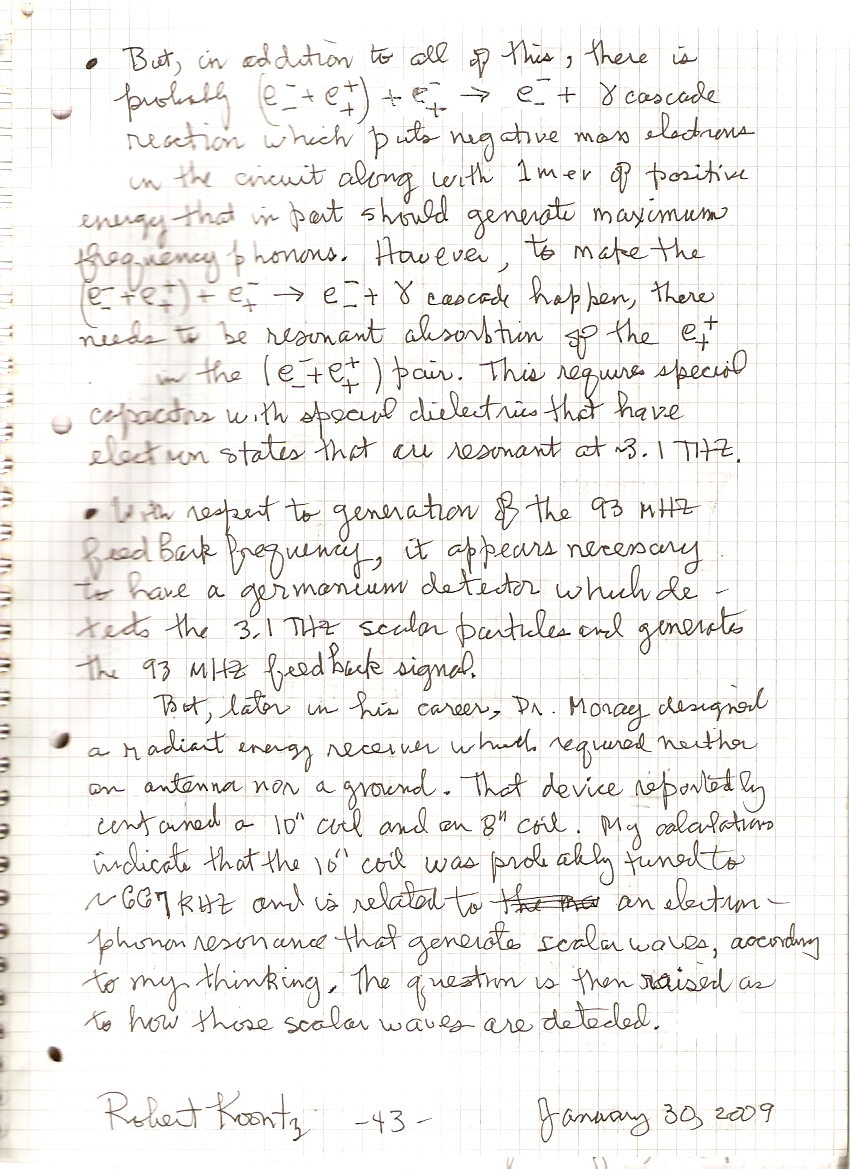 • But, in addition to all of this, there is
probably (e⁻₋ + e⁺₊) + e⁻₊ → e⁻₋ + γ cascade
reaction which puts negative mass electrons
in the circuit along with 1 mev of positive
energy that in part should generate maximum
frequency phonons. However, to make the
(e⁻₋ + e⁺₊) + e⁻₊ → e⁻₋ + γ cascade happen, there
needs to be resonant absorbtion of the e⁺₊
in the (e⁻₋ + e⁺₊) pair. This requires special
capacitors with special dielectrics that have
electron states that are resonant at ~3.1 THZ.
• With respect to generation of the 93 MHZ
feed Back frequency, it appears necessary
to have a germanium detector which de-
tects the 3.1 THZ scalar particles and generates
the 93 MHZ feedback signal.
But, later in his career, Dr. Moray designed
a radiant energy receiver which required neither
an antenna nor a ground. That device reportedly
contained a 10" coil and an 8" coil. My calculations
indicate that the 10" coil was probably tuned to
~667 KHZ and is related to an electron-
phonon resonance that generates scalar waves, according
to my thinking. The question is then raised as
to how those scalar waves are detected.
Robert Koontz -43- January 30, 2009